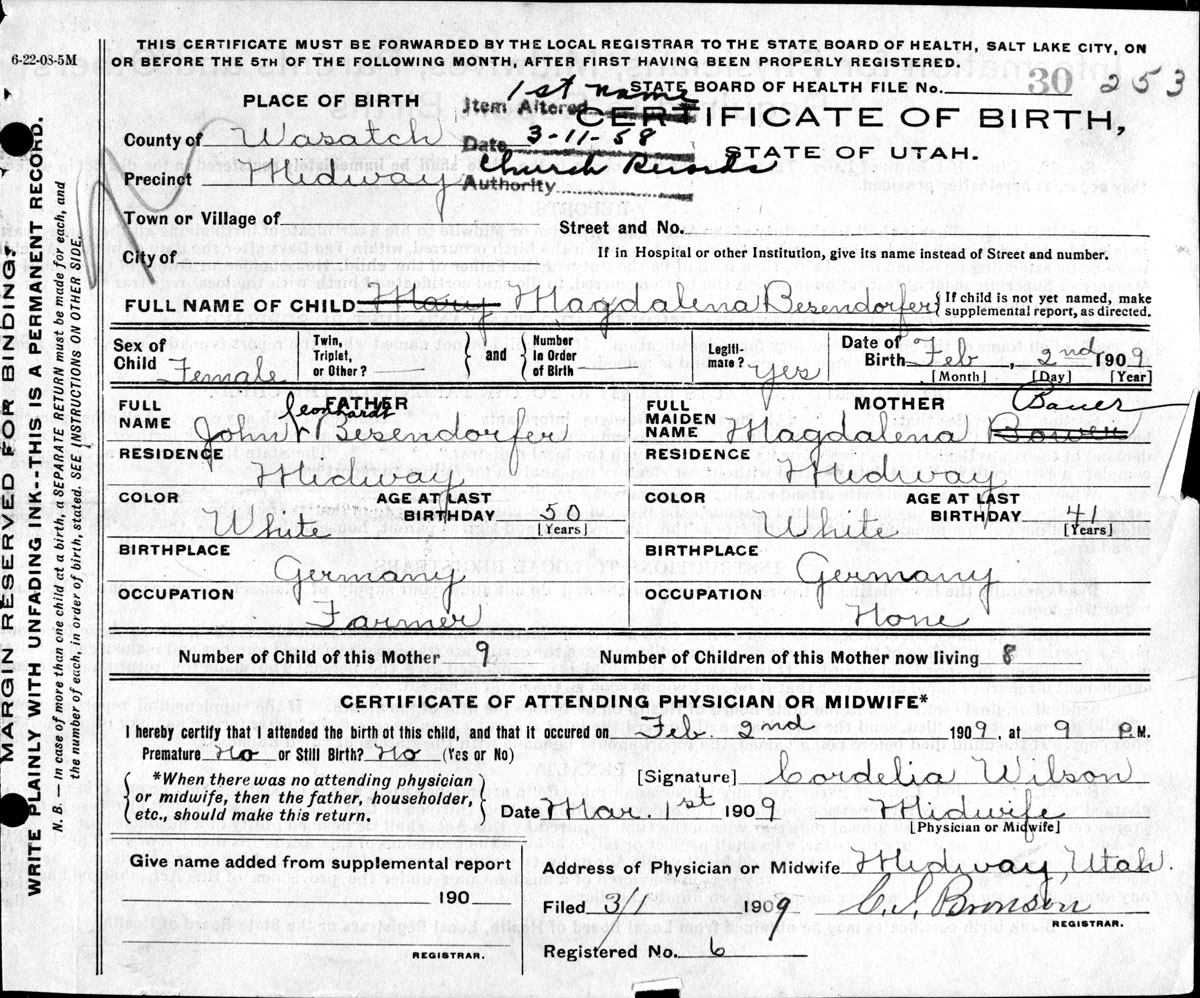 6-22-08-5M
THIS CERTIFICATE MUST BE FORWARDED BY THE LOCAL REGISTRAR TO THE STATE BOARD OF HEALTH, SALT LAKE CITY, ON
OR BEFORE THE 5TH OF THE FOLLOWING MONTH, AFTER FIRST HAVING BEEN PROPERLY REGISTERED.
STATE BOARD OF HEALTH FILE No. 30 253
PLACE OF BIRTH
Item Altered 1st name
Date 3-11-58
Authority Church Records
CERTIFICATE OF BIRTH,
STATE OF UTAH.
County of Wasatch
Precinct Midway
Town or Village of
Street and No.
City of
If in Hospital or other Institution, give its name instead of Street and number.
FULL NAME OF CHILD Mary Magdalena Besendorfer
If child is not yet named, make
supplemental report, as directed.
Sex of
Child Female
Twin,
Triplet,
or Other?
and
Number
in Order
of Birth
Legiti-
mate? yes
Date of
Birth Feb, 2nd 1909
[Month] [Day] [Year]
FULL
NAME
FATHER
John Leonhardt Besendorfer
RESIDENCE
Midway
COLOR
White
AGE AT LAST
BIRTHDAY 50
[Years]
BIRTHPLACE
Germany
OCCUPATION
Farmer
FULL
MAIDEN
NAME
MOTHER
Magdalena Bauer
RESIDENCE
Midway
COLOR
White
AGE AT LAST
BIRTHDAY 41
[Years]
BIRTHPLACE
Germany
OCCUPATION
None
Number of Child of this Mother 9
Number of Children of this Mother now living 8
CERTIFICATE OF ATTENDING PHYSICIAN OR MIDWIFE*
I hereby certify that I attended the birth of this child, and that it occured on Feb. 2nd 1909, at 9 P.M.
Premature No or Still Birth? No (Yes or No)
*When there was no attending physician
or midwife, then the father, householder,
etc., should make this return.
[Signature] Cordelia Wilson
Date Mar. 1st 1909
Midwife
[Physician or Midwife]
Give name added from supplemental report
190
REGISTRAR.
Address of Physician or Midwife Midway, Utah.
Filed 3/1 1909 C.I. Bronson
REGISTRAR.
Registered No. 6
MARGIN RESERVED FOR BINDING?
WRITE PLAINLY WITH UNFADING INK--THIS IS A PERMANENT RECORD.
N. B. — In case of more than one child at a birth, a SEPARATE RETURN must be made for each, and
the number of each, in order of birth, stated. SEE INSTRUCTIONS ON OTHER SIDE.